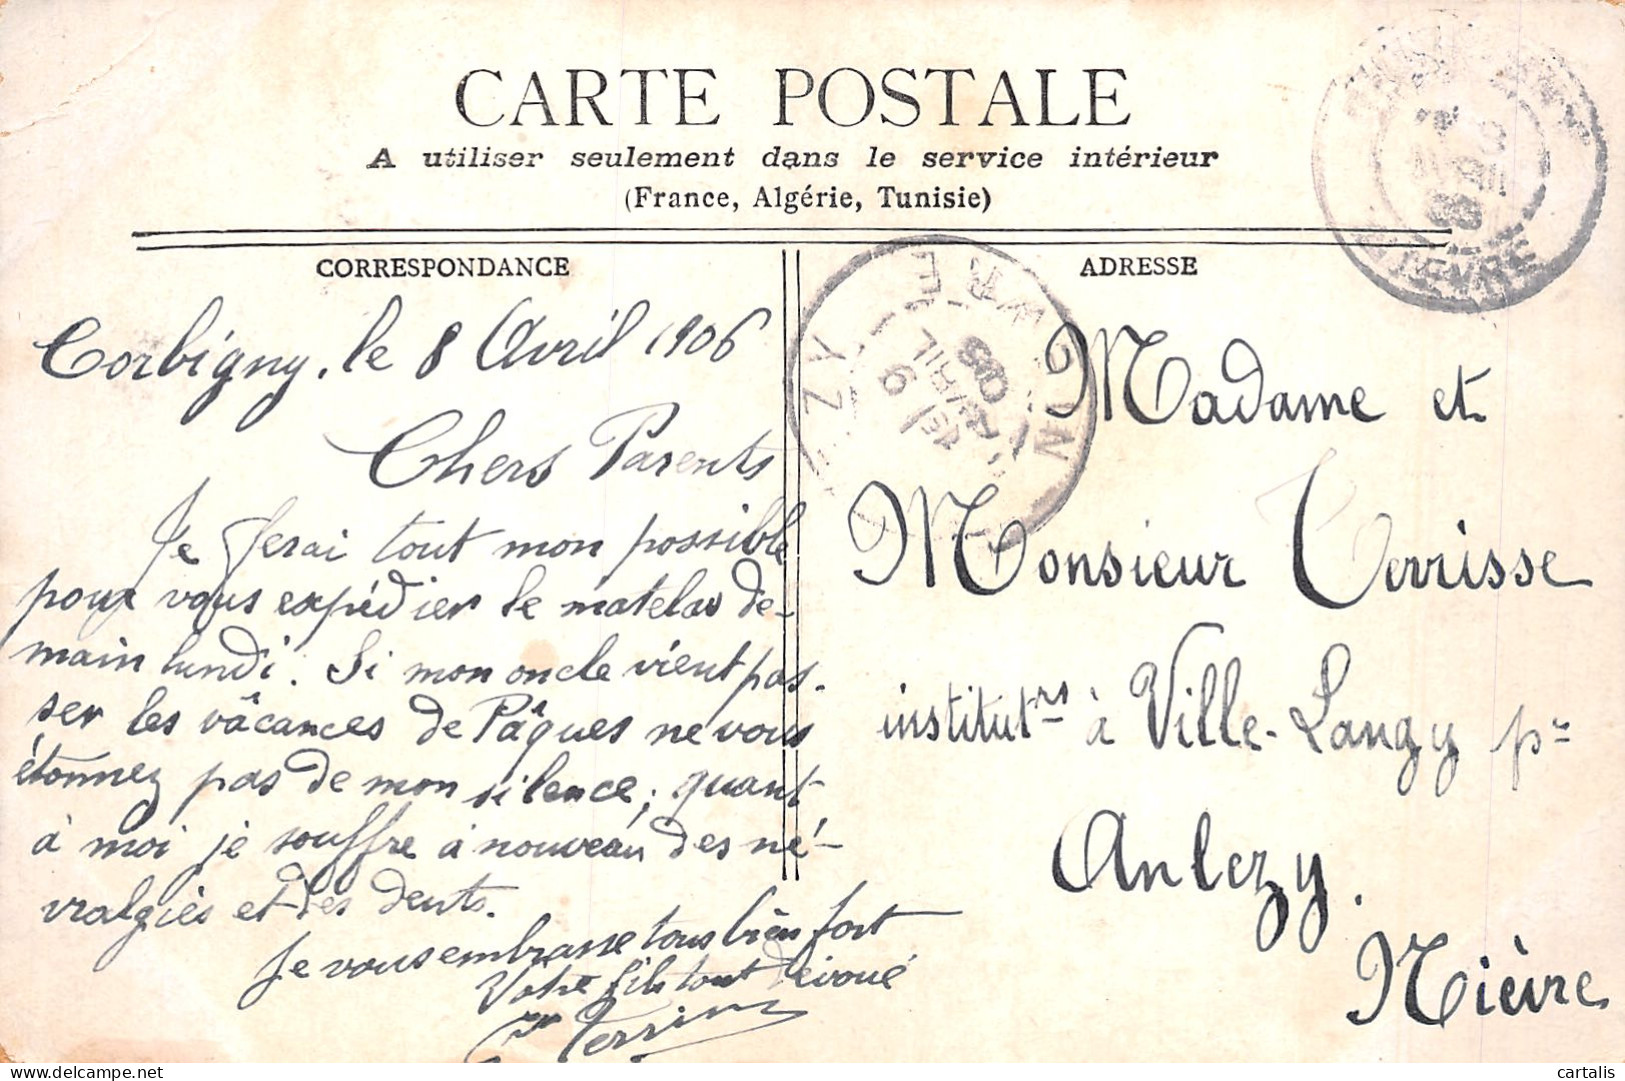 CARTE POSTALE
A utiliser seulement dans le service intérieur
(France, Algérie, Tunisie)
CORRESPONDANCE
Corbigny, le 8 Avril 1906
Chers Parents
Je ferai tout mon possible
pour vous expédier le matelas de-
main lundi. Si mon oncle vient pas-
ser les vâcances de Pâques ne vous
étonnez pas de mon silence; quant
à moi je souffre à nouveau des né-
vralgies et des dents.
Je vous embrasse tous bien fort
Votre fils tout dévoué
ADRESSE
Madame et
Monsieur Terrisse
institutrs à Ville-Langy pr
Anlezy.
Nièvre
NIÈVRE
AVRIL
cartalis